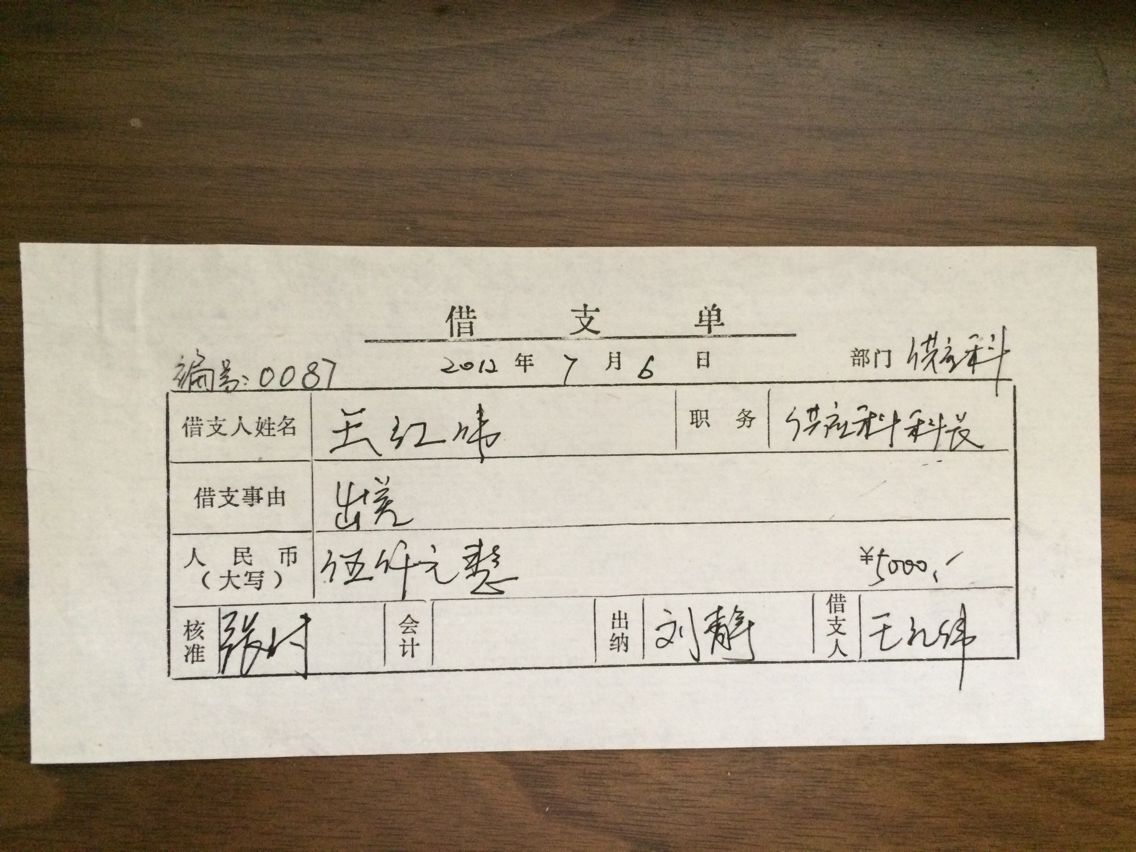 借支单
编号:0087 2012年7月6日 部门 供应科
借支人姓名 王红伟 职务 供应科科长
借支事由 出差
人民币(大写) 伍仟元整 ¥5000.-
核准 张 会计 出纳 刘静 借支人 王红伟